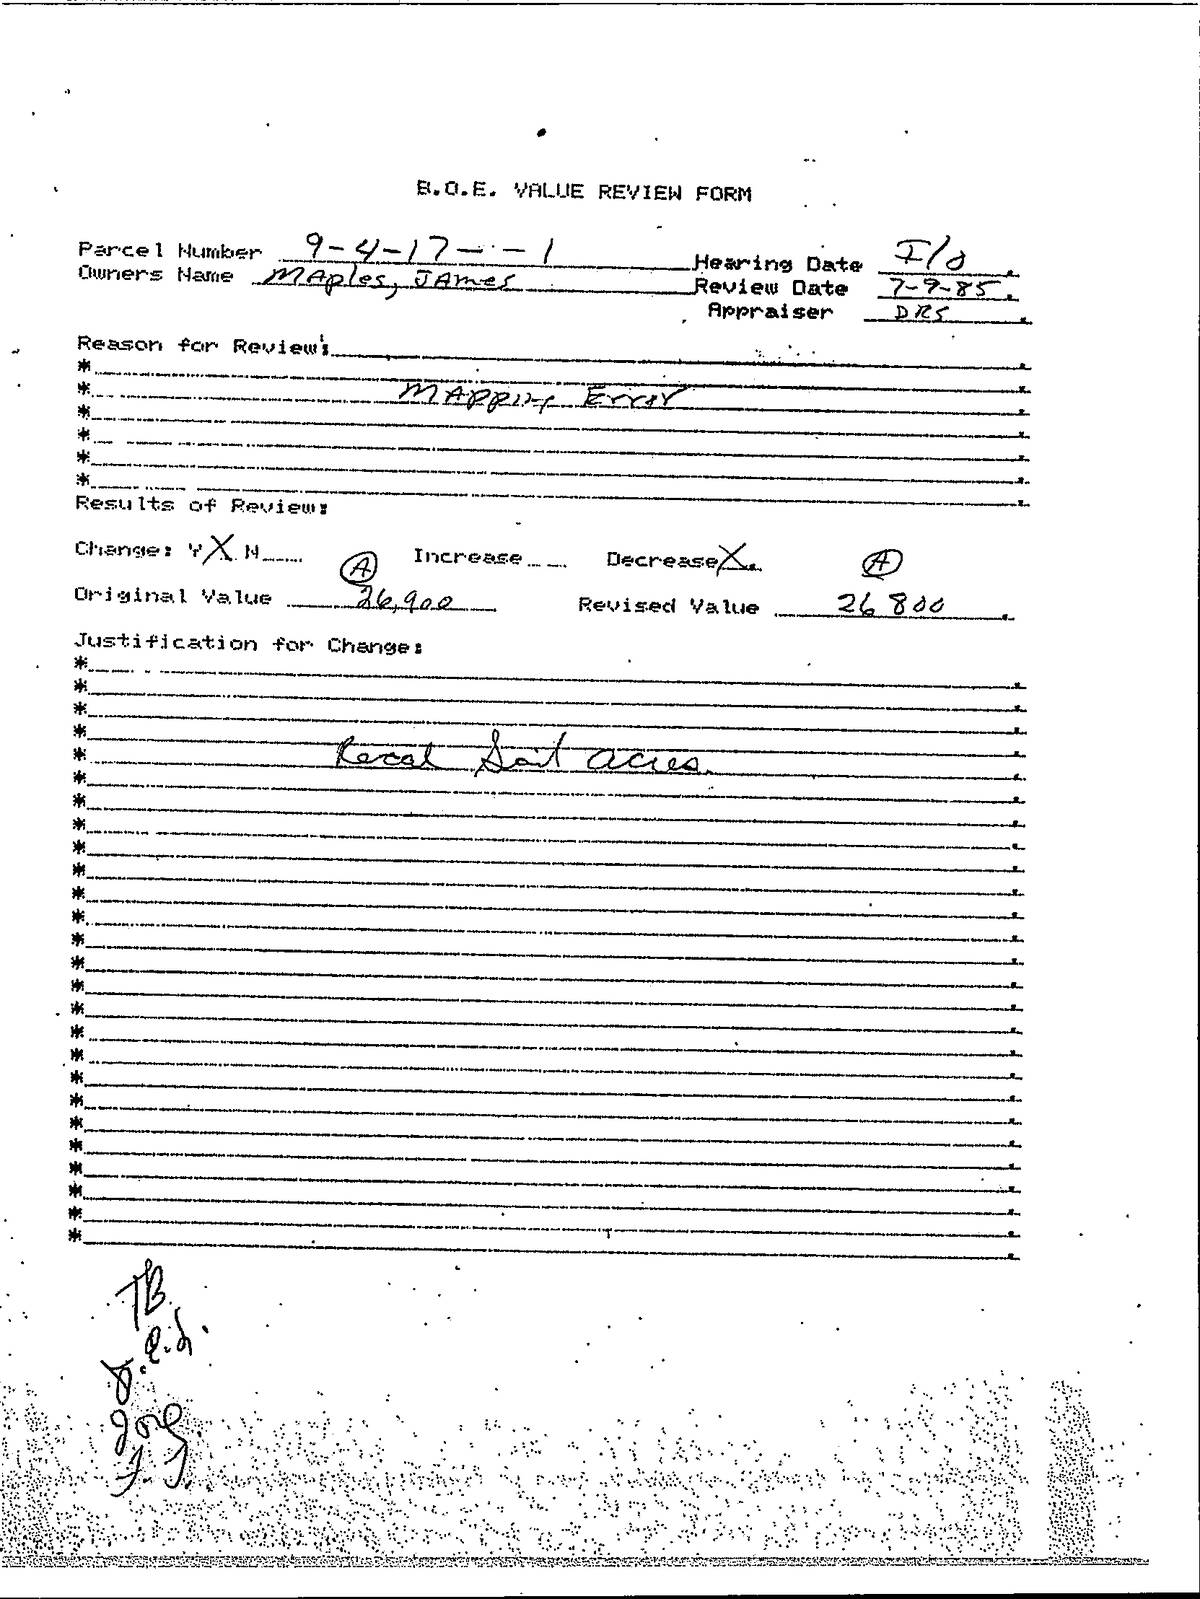 B.O.E. VALUE REVIEW FORM
Parcel Number 9-4-17- - -1 Hearing Date I/O
Owners Name MAples, JAmes Review Date 7-9-85
Appraiser DRS
Reason for Review:
*
* MApping Error
*
*
*
*
Results of Review:
Change: Y X N Increase Decrease X
A A
Original Value 26,900 Revised Value 26 800
Justification for Change:
*
*
*
*
* Recal Soil acres.
*
*
*
*
*
*
*
*
*
*
*
*
*
*
*
*
*
*
*
*
*
TB